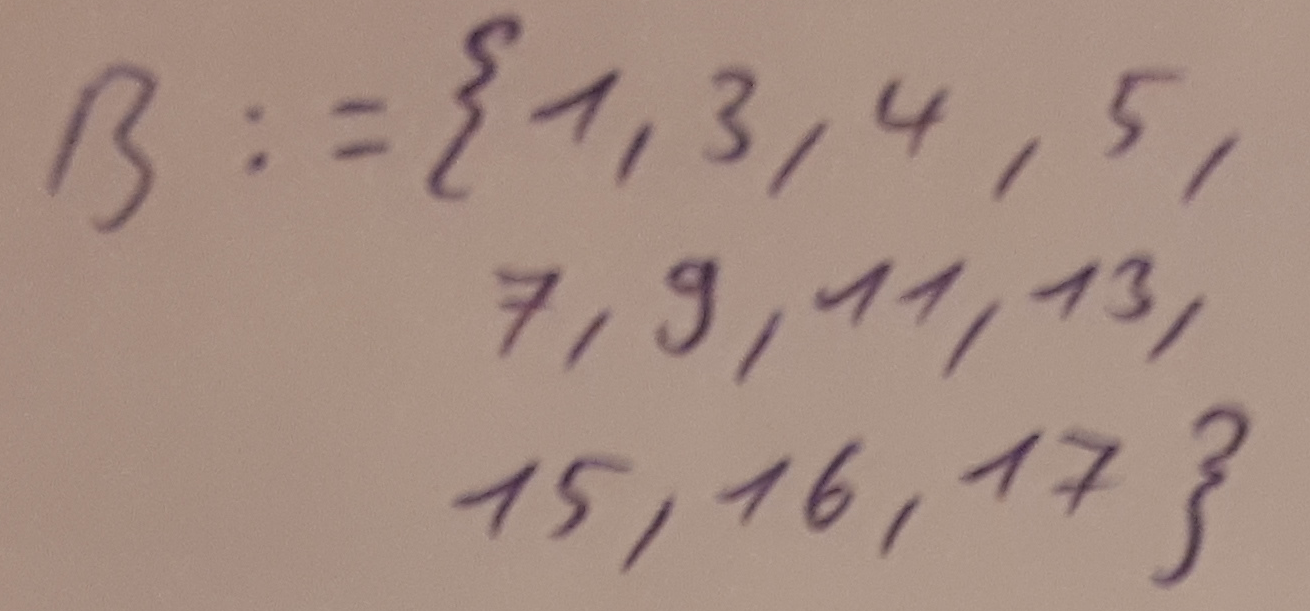 B := {1, 3, 4, 5,
7, 9, 11, 13,
15, 16, 17}